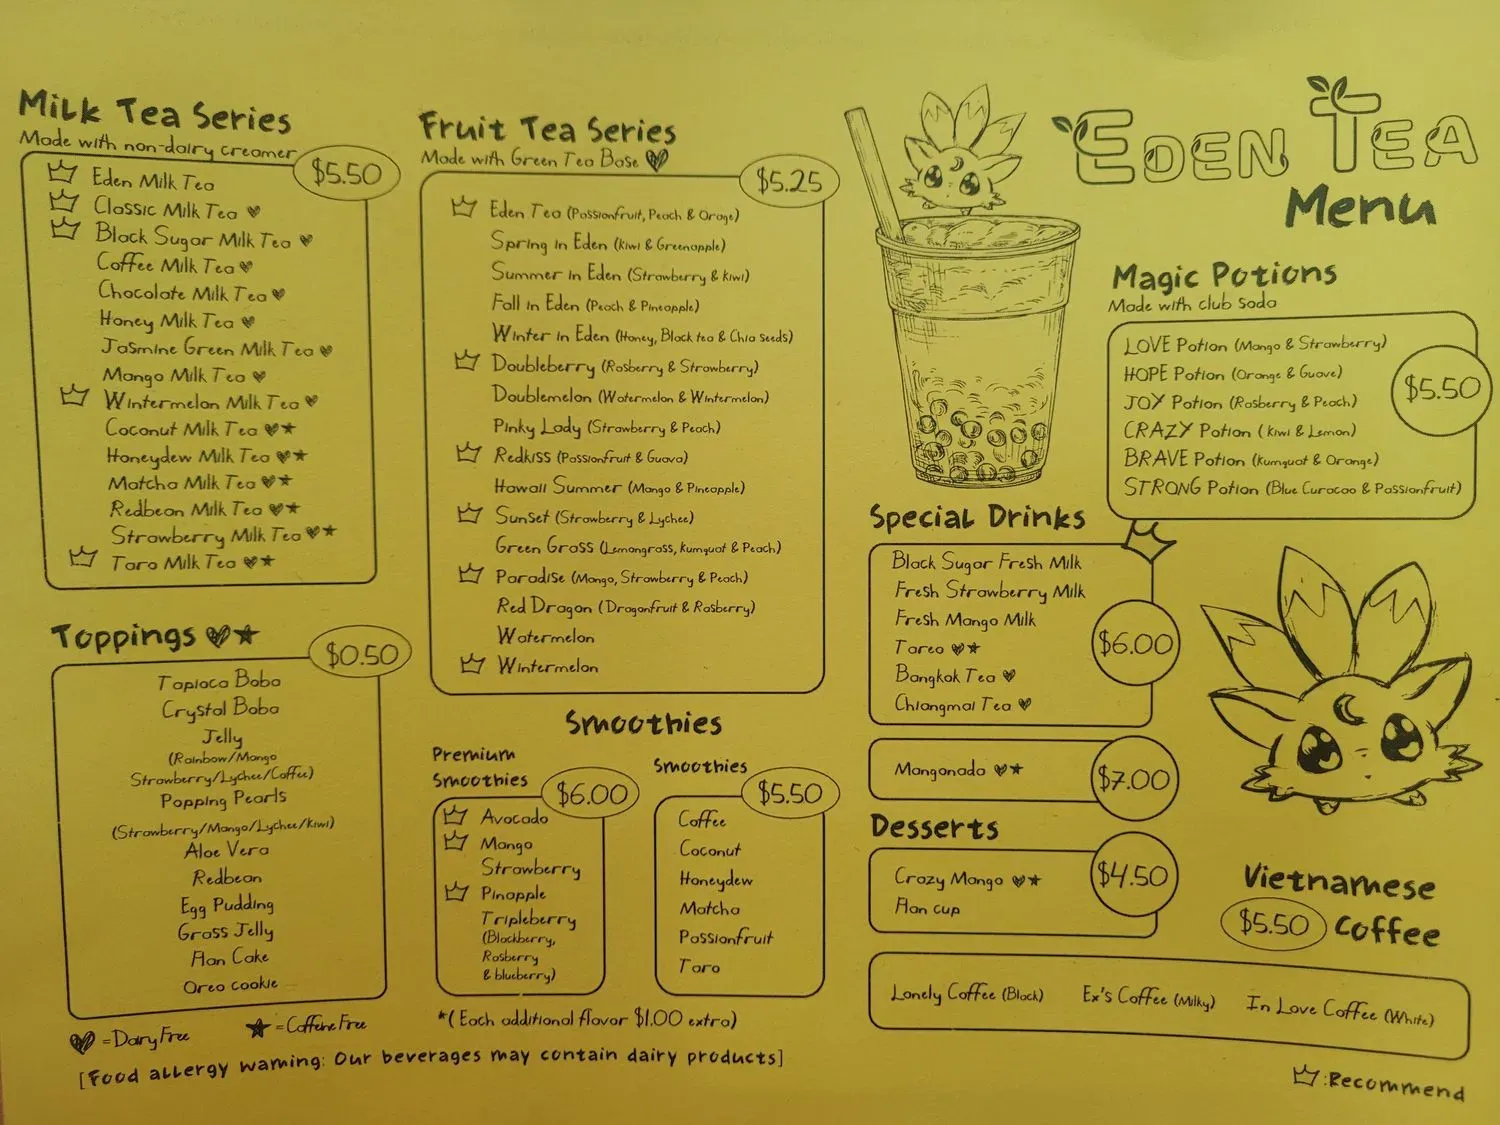 Milk Tea Series
Made with non-dairy creamer
$5.50
Eden Milk Tea
Classic Milk Tea
Black Sugar Milk Tea
Coffee Milk Tea
Chocolate Milk Tea
Honey Milk Tea
Jasmine Green Milk Tea
Mango Milk Tea
Wintermelon Milk Tea
Coconut Milk Tea
Honeydew Milk Tea
Matcha Milk Tea
Redbean Milk Tea
Strawberry Milk Tea
Taro Milk Tea
Toppings
$0.50
Tapioca Boba
Crystal Boba
Jelly
(Rainbow/Mango
Strawberry/Lychee/Coffee)
Popping Pearls
(Strawberry/Mango/Lychee/kiwi)
Aloe Vera
Redbean
Egg Pudding
Grass Jelly
Flan Cake
Oreo cookie
=Dairy Free
=Caffeine Free
[Food allergy warning: Our beverages may contain dairy products]
Fruit Tea Series
Made with Green Tea Base
$5.25
Eden Tea (Passionfruit, Peach & Orage)
Spring in Eden (kiwi & Greenapple)
Summer in Eden (Strawberry & kiwi)
Fall in Eden (Peach & Pineapple)
Winter in Eden (Honey, Black tea & Chia Seeds)
Doubleberry (Rasberry & Strawberry)
Doublemelon (Watermelon & Wintermelon)
Pinky Lady (Strawberry & Peach)
Redkiss (Passionfruit & Guava)
Hawaii Summer (Mango & Pineapple)
Sunset (Strawberry & Lychee)
Green Grass (Lemongrass, kumquat & Peach)
Paradise (Mango, Strawberry & Peach)
Red Dragon (Dragonfruit & Rasberry)
Watermelon
Wintermelon
Smoothies
Premium
Smoothies
$6.00
Avocado
Mango
Strawberry
Pinapple
Tripleberry
(Blackberry,
Rasberry
& blueberry)
Smoothies
$5.50
Coffee
Coconut
Honeydew
Matcha
Passionfruit
Taro
*(Each additional flavor $1.00 extra)
EDEN TEA
Menu
Magic Potions
Made with club soda
$5.50
LOVE Potion (Mango & Strawberry)
HOPE Potion (Orange & Guave)
JOY Potion (Rasberry & Peach)
CRAZY Potion (kiwi & Lemon)
BRAVE Potion (kumquat & Orange)
STRONG Potion (Blue Curacao & Passionfruit)
Special Drinks
Black Sugar Fresh Milk
Fresh Strawberry Milk
Fresh Mango Milk
Tareo
Bangkok Tea
Chiangmai Tea
$6.00
Mangonada
$7.00
Desserts
Crazy Mango
Flan cup
$4.50
Vietnamese
$5.50 Coffee
Lonely Coffee (Black)
Ex's Coffee (Milky)
In Love Coffee (White)
:Recommend